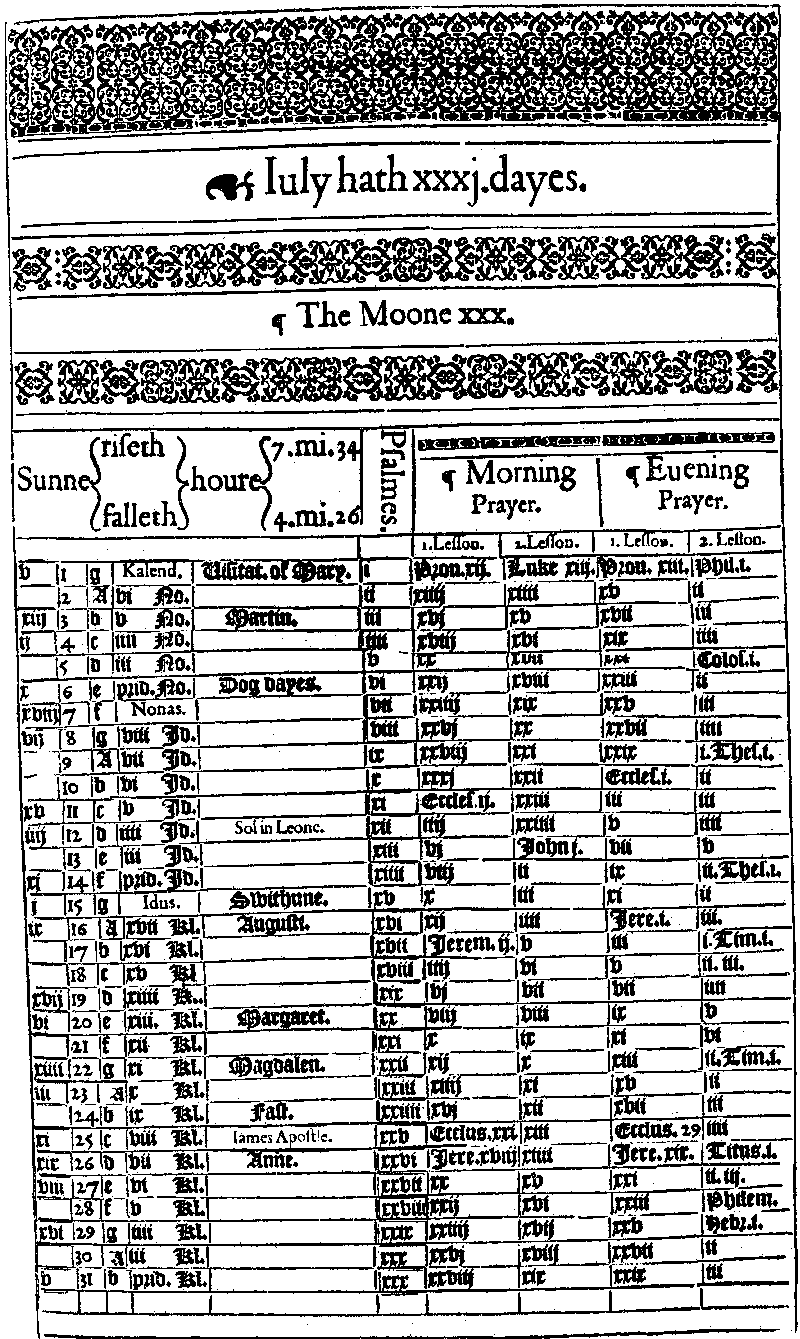 Iuly hath xxxj.dayes.
¶ The Moone xxx.
Sunne riſeth falleth houre 7.mi.34 4.mi.26 Pſalmes. ¶ Morning Prayer. ¶ Euening Prayer.
1.Leſſon. 2.Leſſon. 1. Leſſon. 2. Leſſon.
b 1 g Kalend. Viſitat. of Mary. i Prou.xij. Luke xiij. Prou. xiii. Phil.i.
2 A vi No. ii xiiij xiiii xv ii
xiij 3 b v No. Martin. iii xvj xv xvii iii
ij 4 c iiii No. iiii xviij xvi xix iiii
5 d iii No. v xx xvii xxi Coloſ.i.
x 6 e prid.No. Dog dayes. vi xxij xviii xxiii ii
xviij 7 f Nonas. vii xxiiij xix xxv iii
vij 8 g viii Id. viii xxvj xx xxvii iiii
9 A vii Id. ix xxviij xxi xxix i.Theſ.i.
10 b vi Id. x xxxj xxii Eccleſ.i. ii
xv 11 c v Id. xi Eccleſ.ij. xxiii iii iii
iiij 12 d iiii Id. Sol in Leone. xii iiij xxiiii v iiii
13 e iii Id. xiii vj John j. vii v
xj 14 f prid. Id. xiiii viij ii ix ii.Theſ.i.
j 15 g Idus. Swithune. xv x iii xi ii
ix 16 A xvii Kl. Auguſti. xvi xij iiii Jere.i. iii.
17 b xvi Kl. xvii Jerem.ij. v iii i.Tim.i.
18 c xv Kl xviii iiij vi v ii. iii.
xvij 19 d xiiii K.. xix vj vii vii iiii
vi 20 e xiii. Kl. Margaret. xx viij viii ix v
21 f xii Kl. xxi x ix xi vi
xiiii 22 g xi Kl. Magdalen. xxii xij x xiii ii.Tim.i.
iii 23 A x Kl. xxiii xiiij xi xv ii
24 b ix Kl. Faſt. xxiiii xvj xii xvii iii
xi 25 c viii Kl. Iames Apoſtle. xxv Ecclus.xxi xiii Ecclus. 29 iiii
xix 26 d vii Kl. Anne. xxvi Jere.xviij xiiii Jere. xix. Titus.i.
viii 27 e vi Kl. xxvii xx xv xxi ii. iij.
28 f v Kl. xxviii xxij xvi xxiii Philem.
xvi 29 g iiii Kl. xxix xxiiij xvij xxv Hebr.i.
30 A iii Kl. xxx xxvj xviij xxvii ii
v 31 b prid. Kl. xxx xxviij xix xxix iii